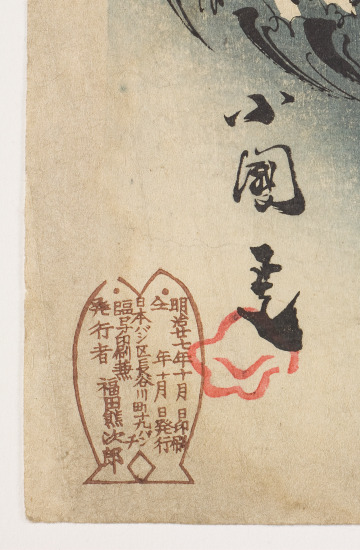 小國画
明治廿七年十月 日印刷
仝 年十月 日発行
日本バシ区長谷川町十九バンチ
臨写印刷兼
発行者 福田熊次郎